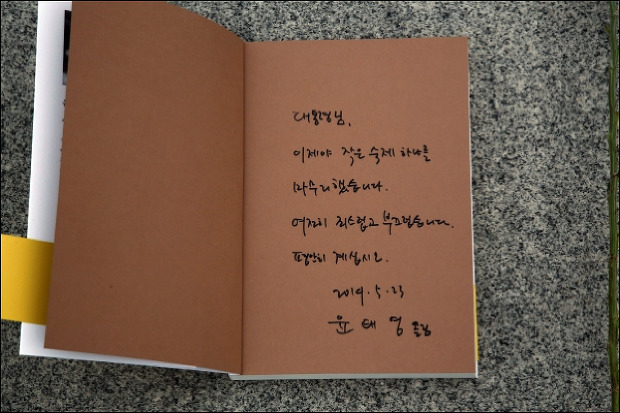 대통령님,
이제야 작은 숙제 하나를
마무리했습니다.
여전히 죄스럽고 부끄럽습니다.
편안히 계십시오.
2019. 5. 23
윤태영 올림